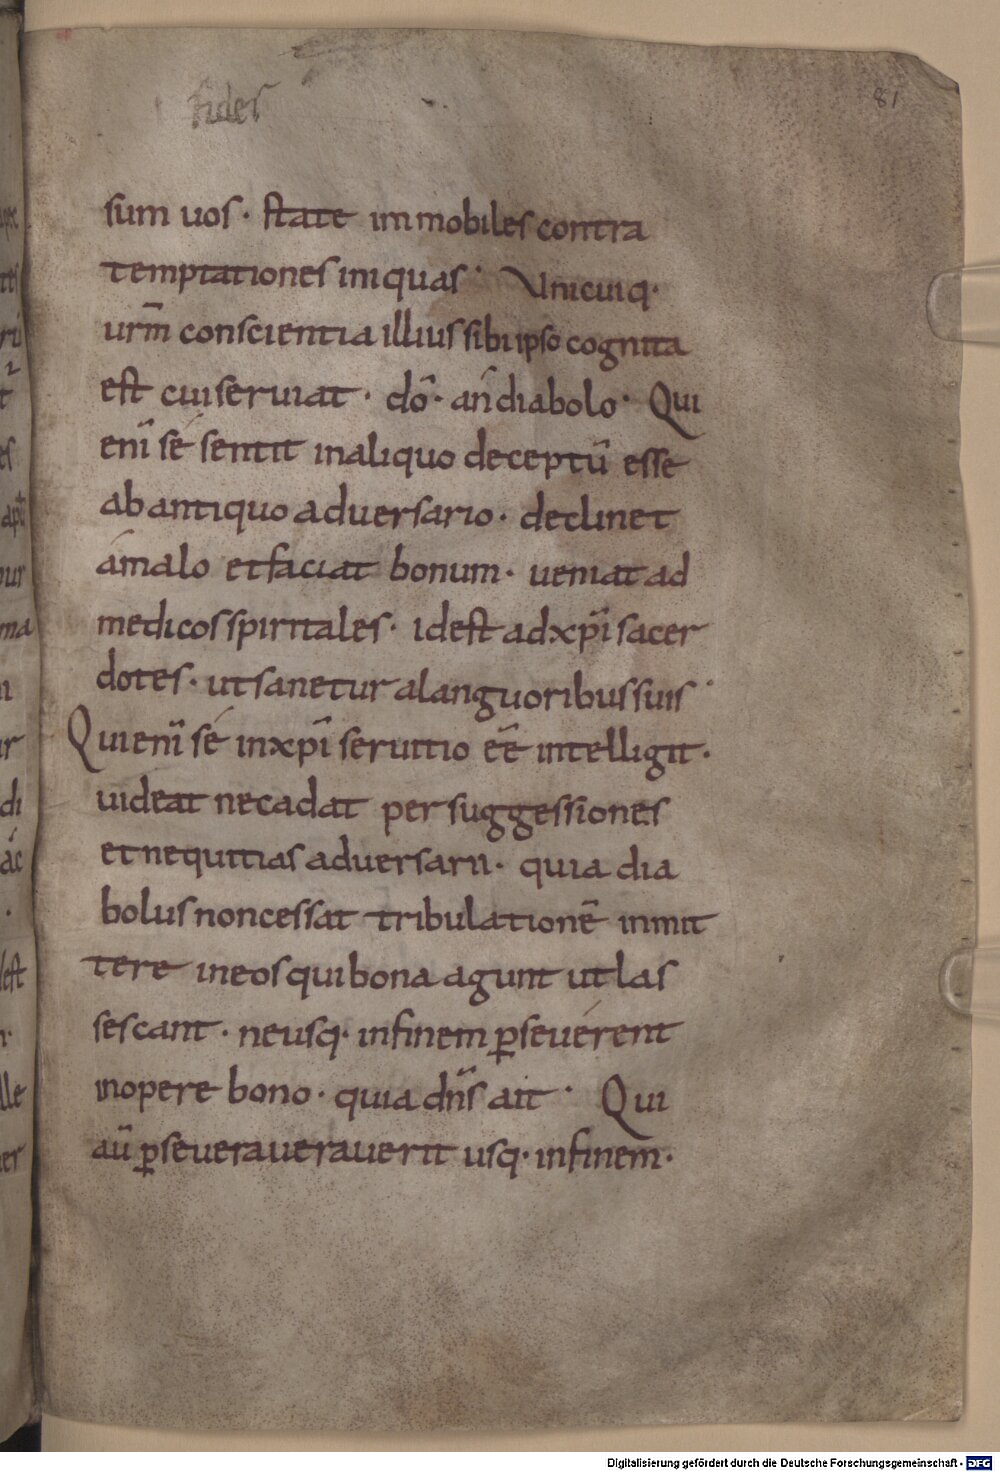 fides
81
sum uos· state immobiles contra
temptationes iniquas· Unicuiq·
urm̄ conscientia illius sibi ipso cognita
est cui seruiat· dō· an diabolo· Qui
enī sé sentit in aliquo deceptū esse
ab antiquo aduersario· declinet
á malo et faciat bonum· ueniat ad
medicos spiritales· id est ad xp̄i sacer
dotes· ut sanetur a languoribus suis·
Qui enī sé in xp̄i seruitio eē intelligit·
uideat ne cadat per suggessiones
et nequitias aduersarii· quia dia
bolus non cessat tribulationē inmit
tere in eos qui bona agunt ut las
sescant· ne usq· in finem ꝑseuérent
in opere bono· quia dn̄s ait· Qui
aū ꝑseuerauerauerit usq· in finem·
Digitalisierung gefördert durch die Deutsche Forschungsgemeinschaft - DFG